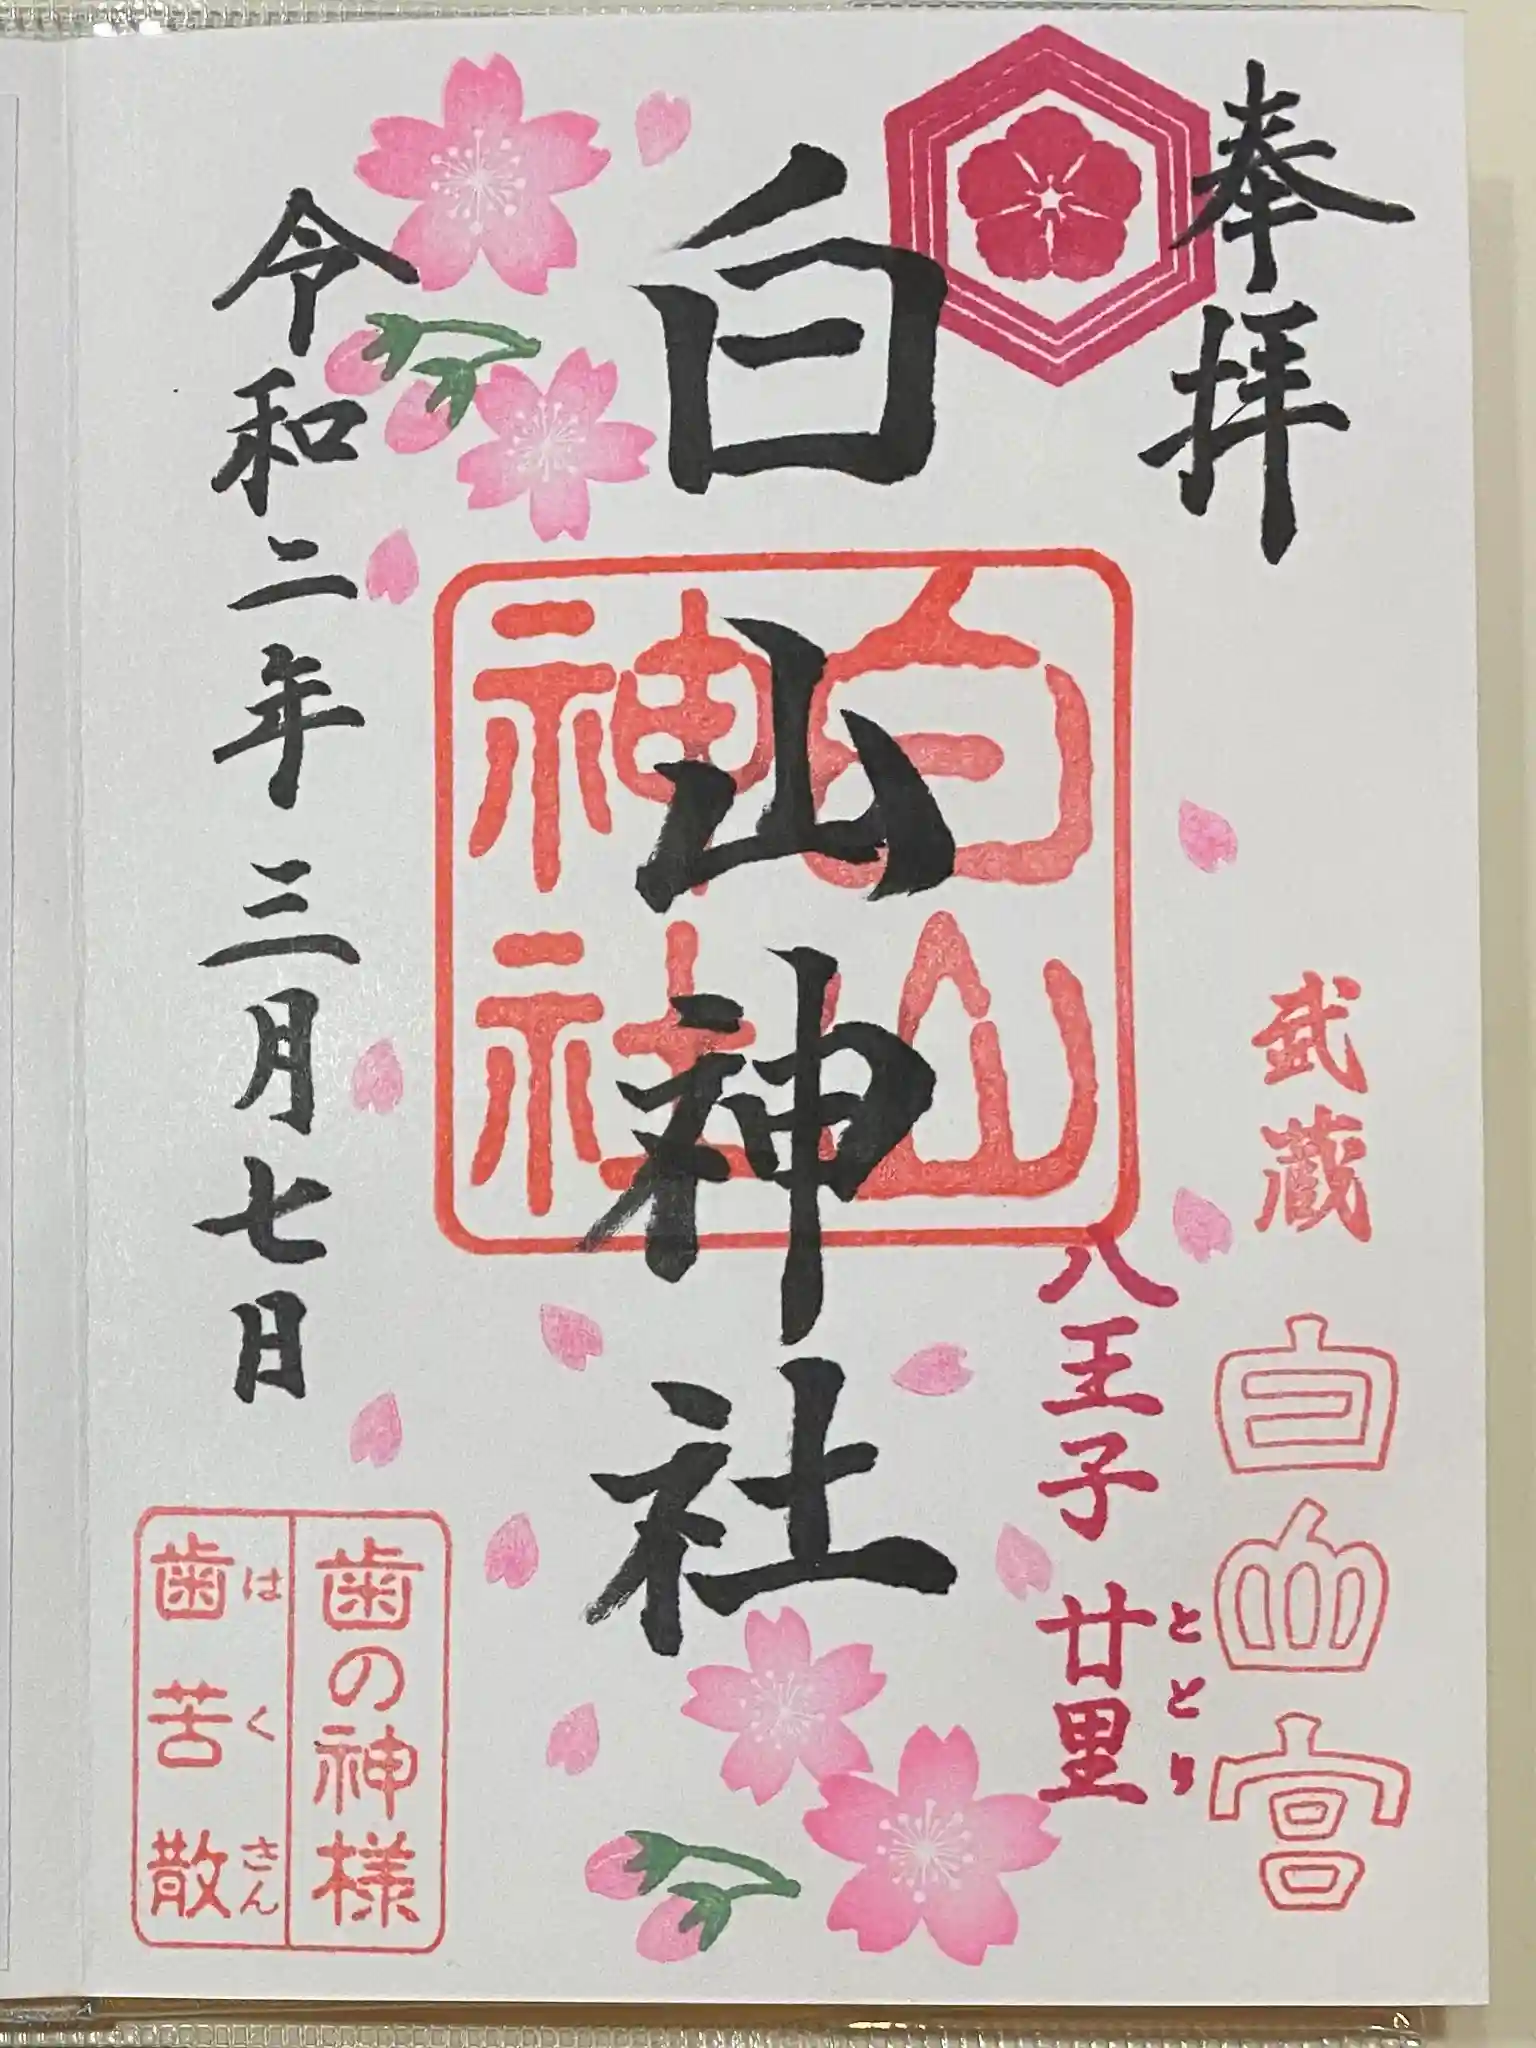 奉拝
武蔵
白山宮
八王子 廿里
ととり
白山神社
白山
神社
令和二年三月七日
歯の神様
歯苦散
はくさん